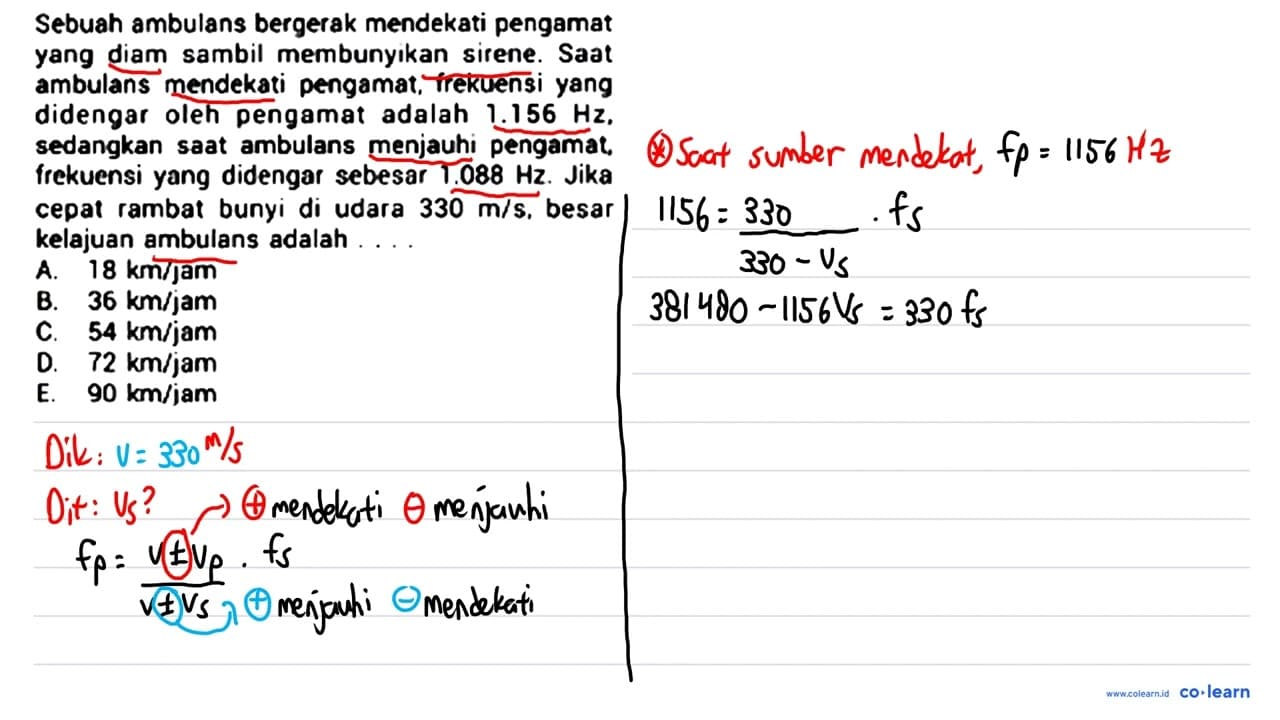 Sebuah ambulans bergerak mendekati pengamat
yang diam sambil membunyikan sirene. Saat
ambulans mendekati pengamat, frekuensi yang
didengar oleh pengamat adalah 1.156 Hz,
sedangkan saat ambulans menjauhi pengamat,
frekuensi yang didengar sebesar 1.088 Hz. Jika
cepat rambat bunyi di udara 330 m/s, besar
kelajuan ambulans adalah . . . .
A. 18 km/jam
B. 36 km/jam
C. 54 km/jam
D. 72 km/jam
E. 90 km/jam
Dik: v = 330 m/s
Dit: Vs?
⊕ mendekati ⊖ menjauhi
fp = v ± Vp . fs
v ± Vs
⊕ menjauhi ⊖ mendekati
⊛ Saat sumber mendekat, fp = 1156 Hz
1156 = 330 . fs
330 - Vs
381480 - 1156 Vs = 330 fs
www.colearn.id co·learn